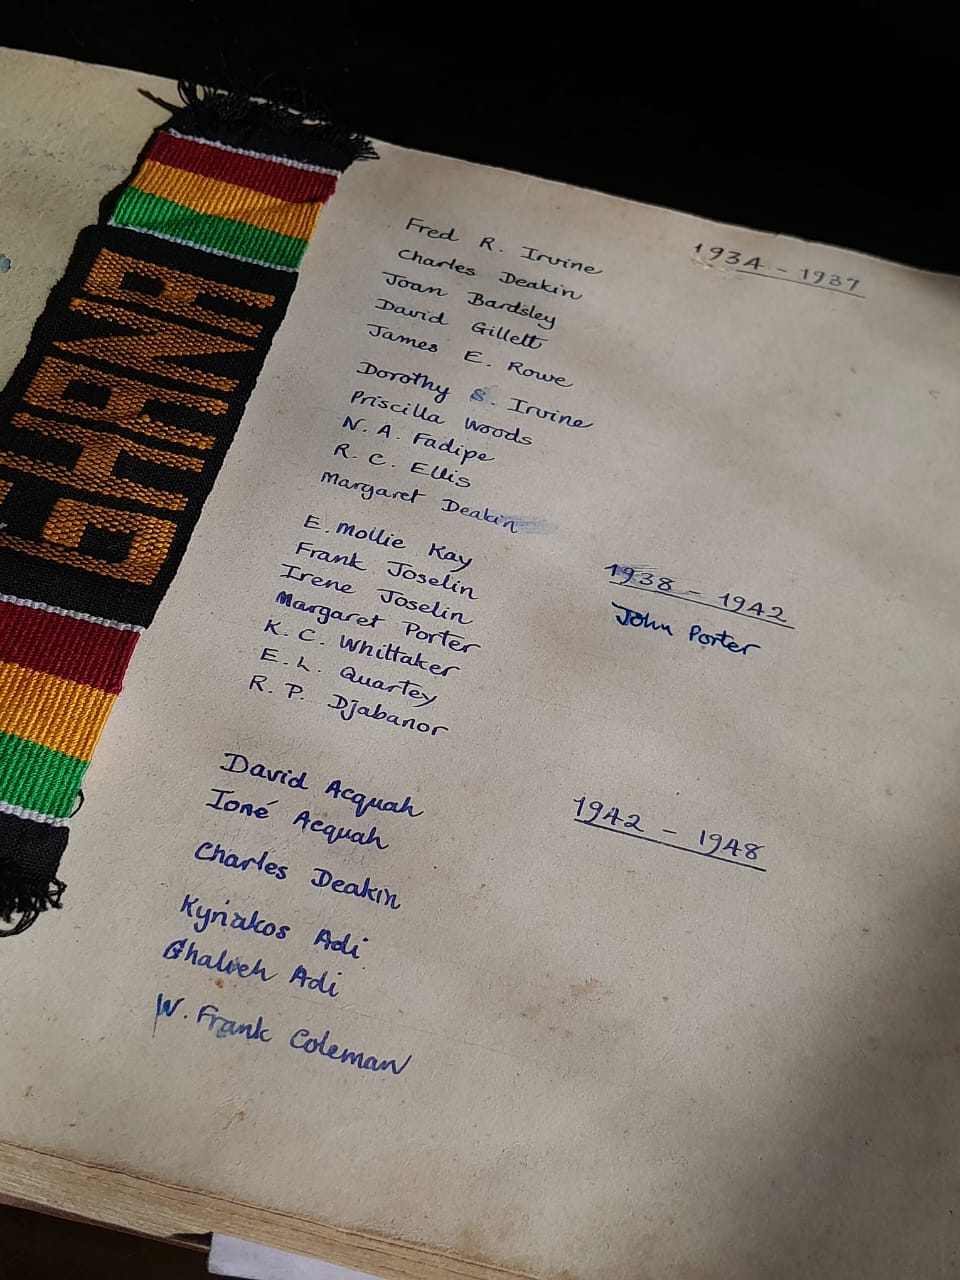 GHANA
Fred R. Irvine 1934 - 1937
Charles Deakin
Joan Bardsley
David Gillett
James E. Rowe
Dorothy S. Irvine
Priscilla Woods
N. A. Fadipe
R. C. Ellis
Margaret Deakin
E. Mollie Kay 1938 - 1942
Frank Joselin John Porter
Irene Joselin
Margaret Porter
K. C. Whittaker
E. L. Quartey
R. P. Djabanor
David Acquah 1942 - 1948
Ioné Acquah
Charles Deakin
Kyriakos Adi
Ghalieh Adi
W. Frank Coleman